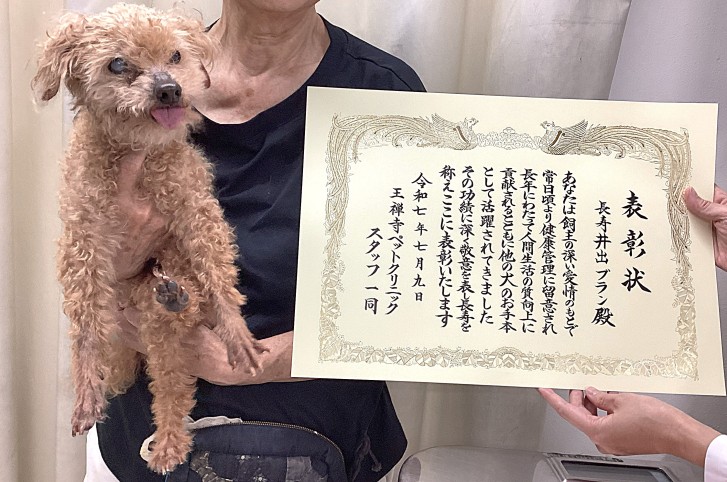 表彰状
長寿井出 ブラン殿
あなたは飼主の深い愛情のもとで
常日頃より健康管理に留意され
長年にわたって人間生活の質向上に
貢献されるとともに他の犬のお手本
として活躍されてきました
その功績に深く敬意を表し長寿を
称えここに表彰いたします
令和七年七月九日
王禅寺ペットクリニック
スタッフ一同